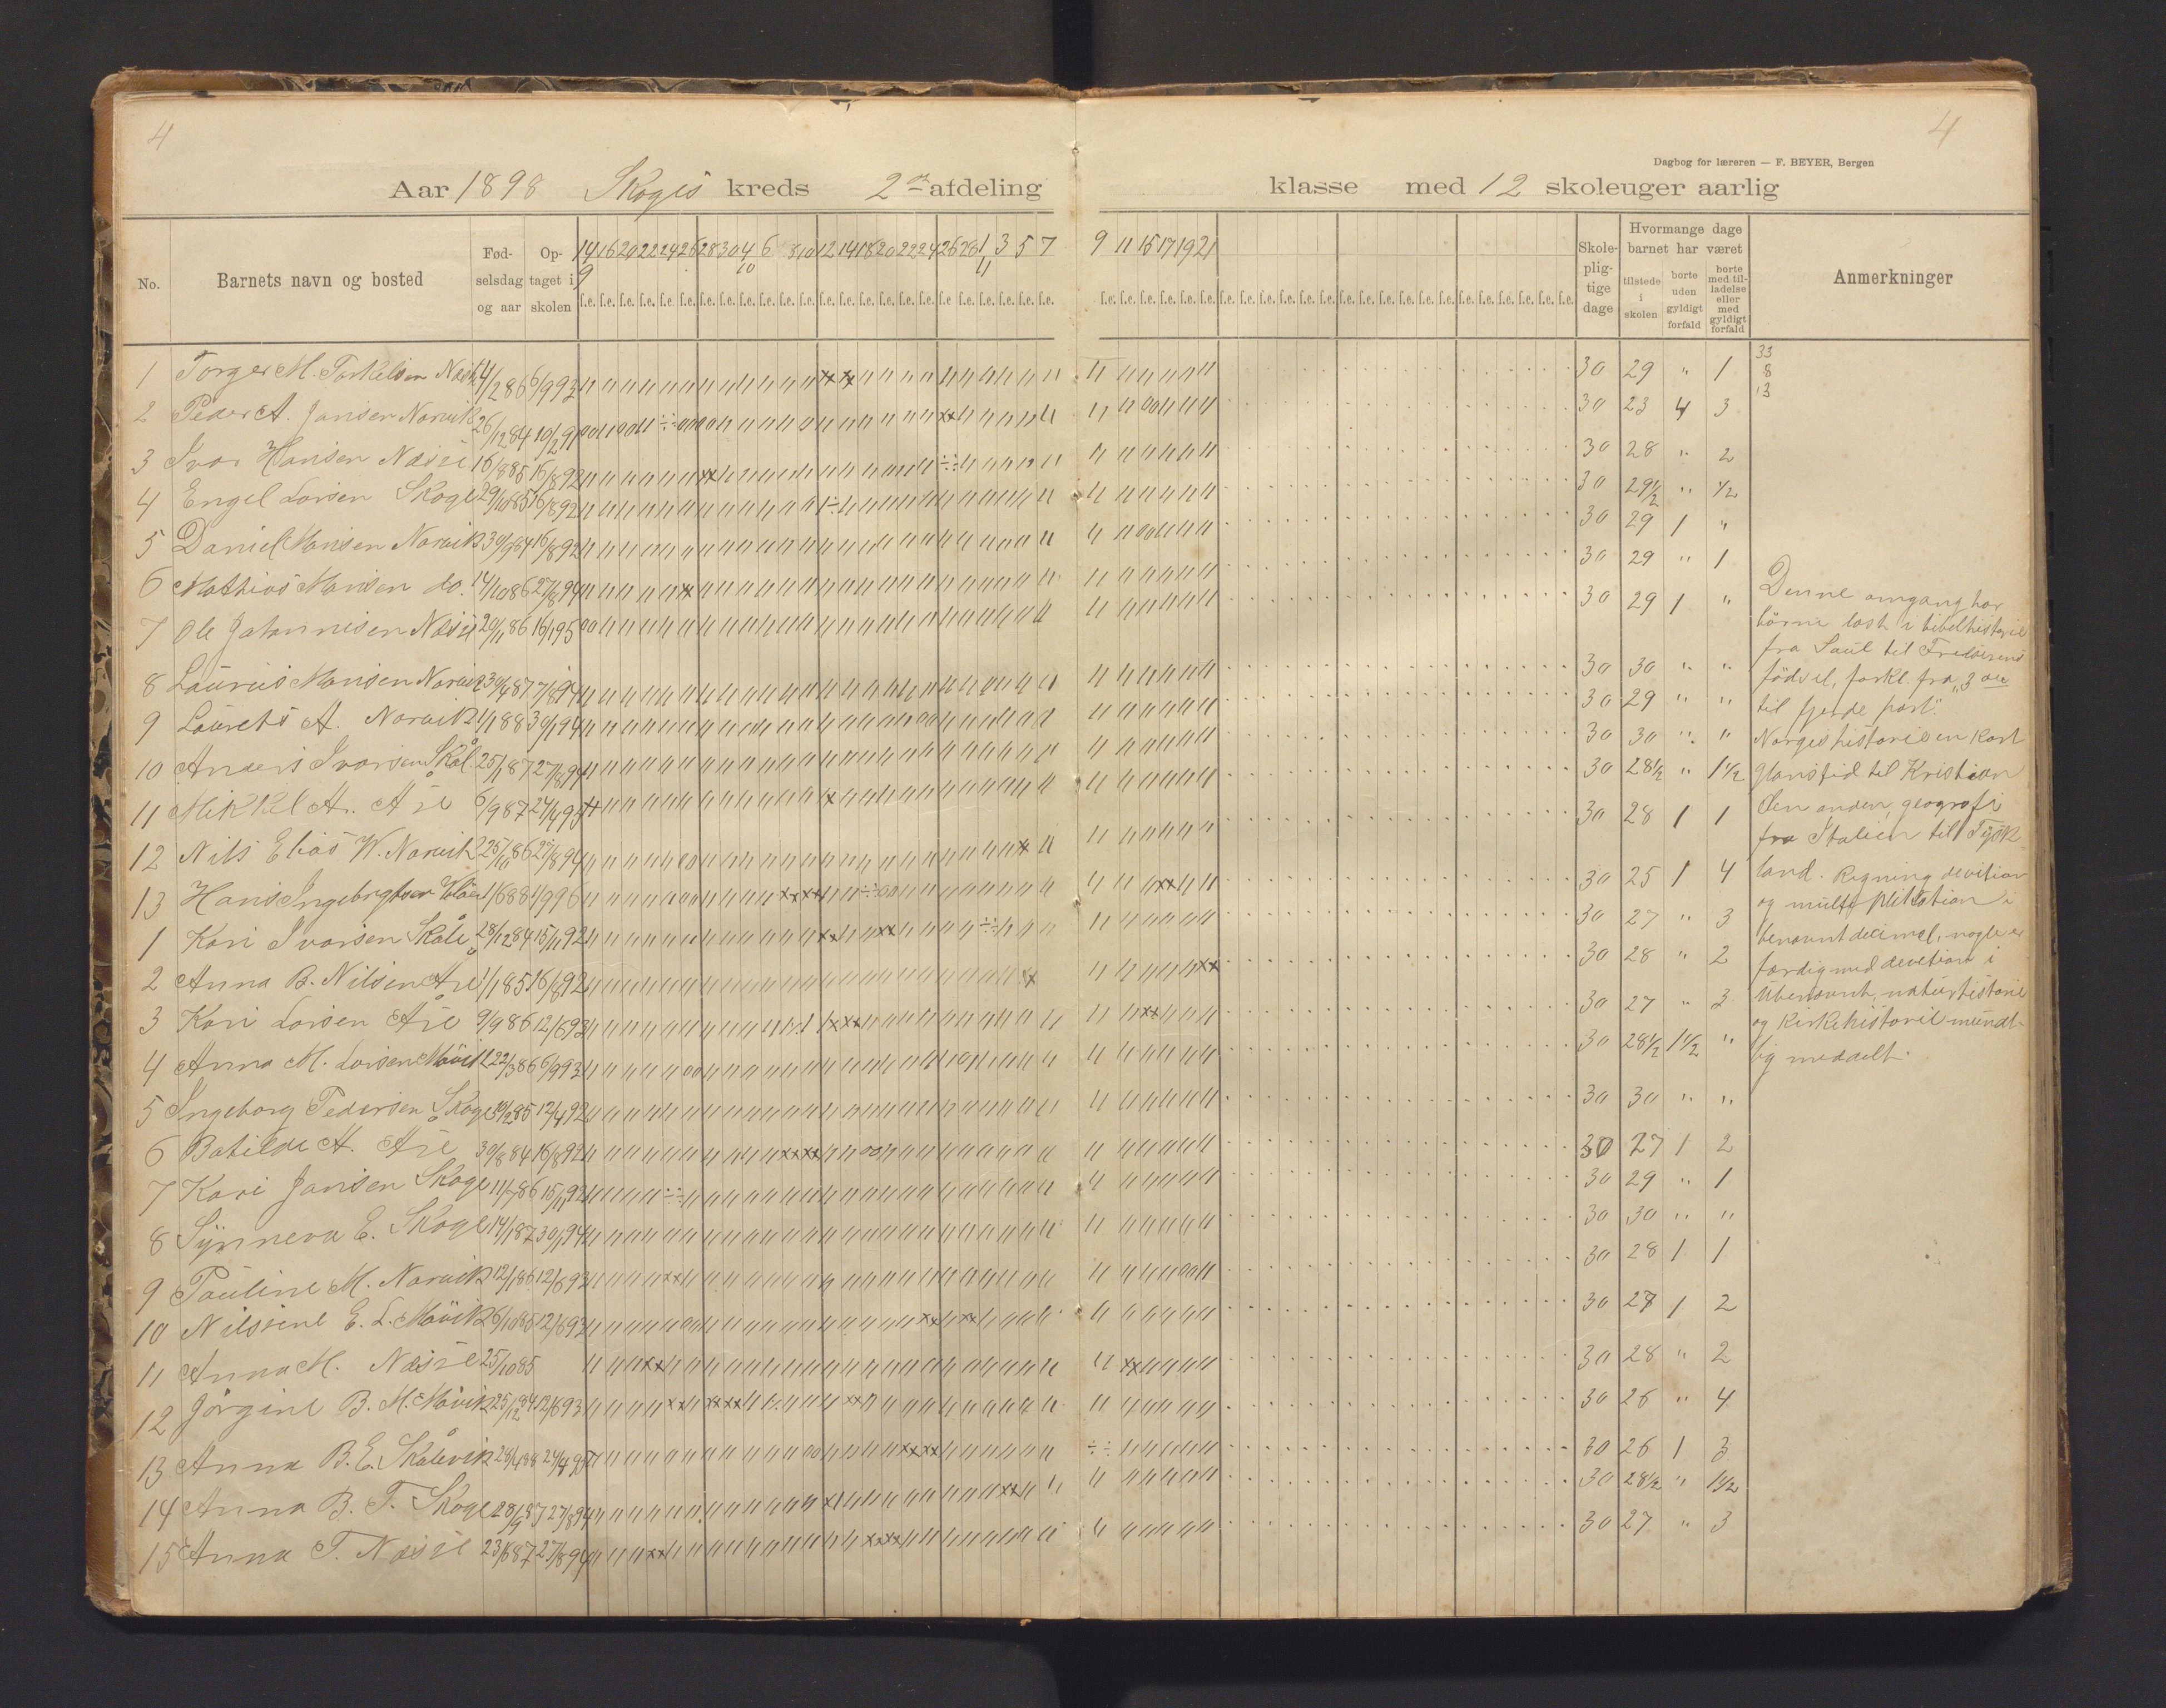 4
4
Dagbog for læreren — F. BEYER, Bergen
Aar 1898 Skoges kreds 2den afdeling klasse med 12 skoleuger aarlig
No. Barnets navn og bosted Fødselsdag og aar Optaget i skolen Skolepligtige dage Hvormange dage barnet har været tilstede i skolen borte uden gyldigt forfald borte med tilladelse eller med gyldigt forfald Anmerkninger
14/9 16 20 22 24 26 28 30 4/10 6 8 10 12 14 18 20 22 24 26 28 1/11 3 5 7 9 11 15 17 19 21
f.e. f.e. f.e. f.e. f.e. f.e. f.e. f.e. f.e. f.e. f.e. f.e. f.e. f.e. f.e. f.e. f.e. f.e. f.e. f.e. f.e. f.e. f.e. f.e.
1 Torger M. Torkelsen 4/2 86 6/9 93 30 29 " 1
2 Peder A. Jansen Norvik 26/12 84 10/2 91 30 23 4 3
3 Ivar Hansen Næsse 16/8 85 16/8 92 30 28 " 2
4 Engel Larsen Skoge 29/10 85 16/8 92 30 29½ " ½
5 Daniel Hansen Norvik 30/9 84 16/8 92 30 29 1 "
6 Mathias Hansen do. 14/10 86 27/8 94 30 29 " 1
7 Ole Johannesen Næsse 20/11 86 16/1 95 30 29 1 "
8 Laurits Hansen Norvik 30/4 87 7/8 94 30 30 " "
9 Laurets A. Norvik 1/1 88 30/1 94 30 29 " "
10 Anders Ivarsen Skål. 25/1 87 27/8 94 30 30 " "
11 Mikkel A. Åse 6/9 87 24/4 95 30 28½ " 1½
12 Nils Elias W. Norvik 25/10 86 27/8 94 30 28 1 1
13 Hans Ingebrigtsen 1/6 88 1/9 96 30 25 1 4
1 Kari Ivarsen Skåle 28/12 84 15/11 92 30 27 " 3
2 Anna B. Nilsen Åse 1/1 85 16/8 92 30 28 " 2
3 Kari Larsen Åse 9/9 86 12/6 93 30 27 " 3
4 Anna M. Larsen Møvik 22/3 86 6/9 93 30 28½ 1½ "
5 Ingeborg Pedersen Skoge 10/2 85 12/4 92 30 30 " "
6 Batilde A. Åse 30/8 84 16/8 92 30 27 1 2
7 Kari Jansen Skoge 11/7 86 15/11 92 30 29 " 1
8 Synneva E. Skoge 14/1 87 30/1 94 30 30 " "
9 Pauline M. Norvik 12/1 86 12/6 93 30 28 1 1
10 Nilsine E. L. Møvik 26/10 85 12/6 93 30 27 1 2
11 Anna M. Næsse 25/10 85 30 28 " 2
12 Jørgine B. M. Møvik 25/12 84 12/6 93 30 26 " 4
13 Anna B. E. Skålevik 28/4 88 24/4 95 30 26 1 3
14 Anna B. T. Skoge 28/9 87 27/8 94 30 28½ " 1½
15 Anna T. Næsse 23/6 87 27/8 94 30 27 " 3
33
8
13
Denne omgang har
børne læst i bibelhistorie
fra Saul til Frelserens
fødsel, forkl. fra "3die
til fjerde part".
Norgeshistorie en kort
glanstid til Kristian
den anden, geografi
fra Italien til Tysk-
land. Regning devition
og multiplikation i
benævnt decimal, nogle er
færdig med devetion i
Ubenævnt, naturhistorie
og Kirkehistorie mundt-
lig meddelt.